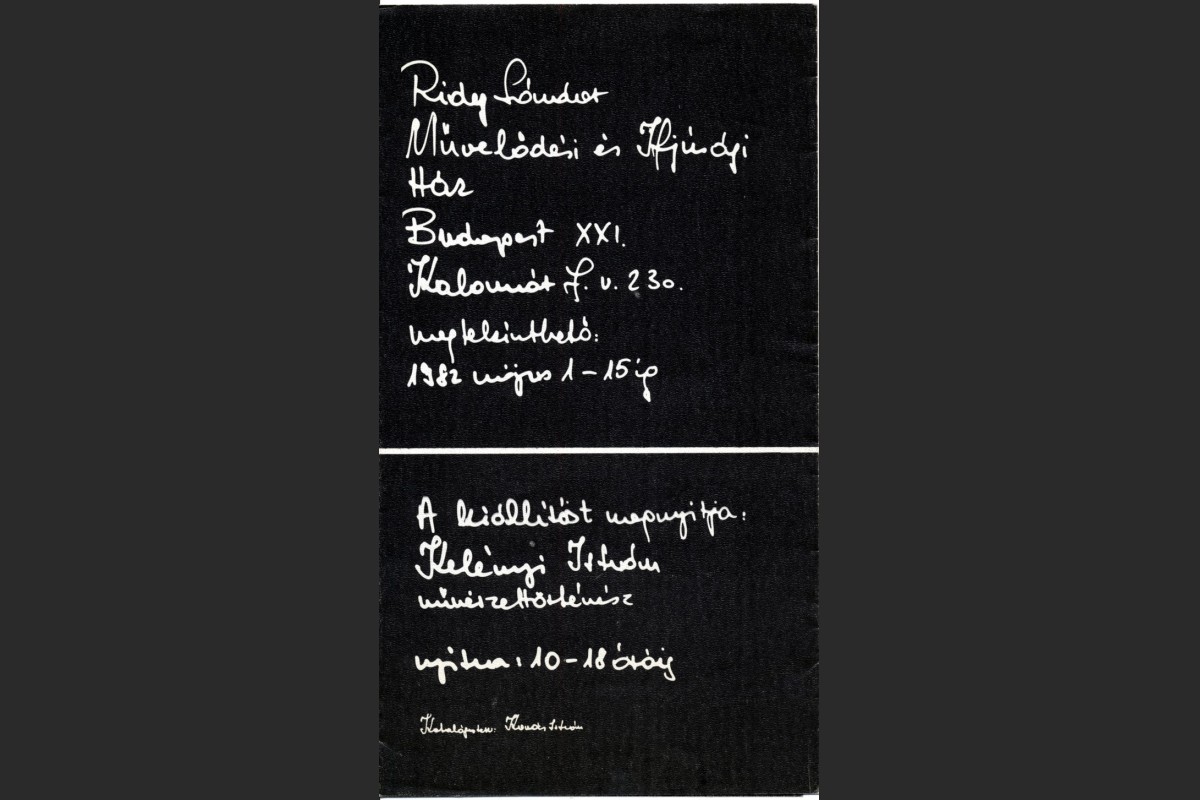 Rideg Sándor
Művelődési és Ifjúsági
Ház
Budapest XXI.
Kalamár J. u. 230.
megtekinthető:
1982 május 1-15ig
A kiállítást megnyitja:
Kelényi István
művészettörténész
nyitva: 10-18 óráig
Katalógusterv: Kovács István